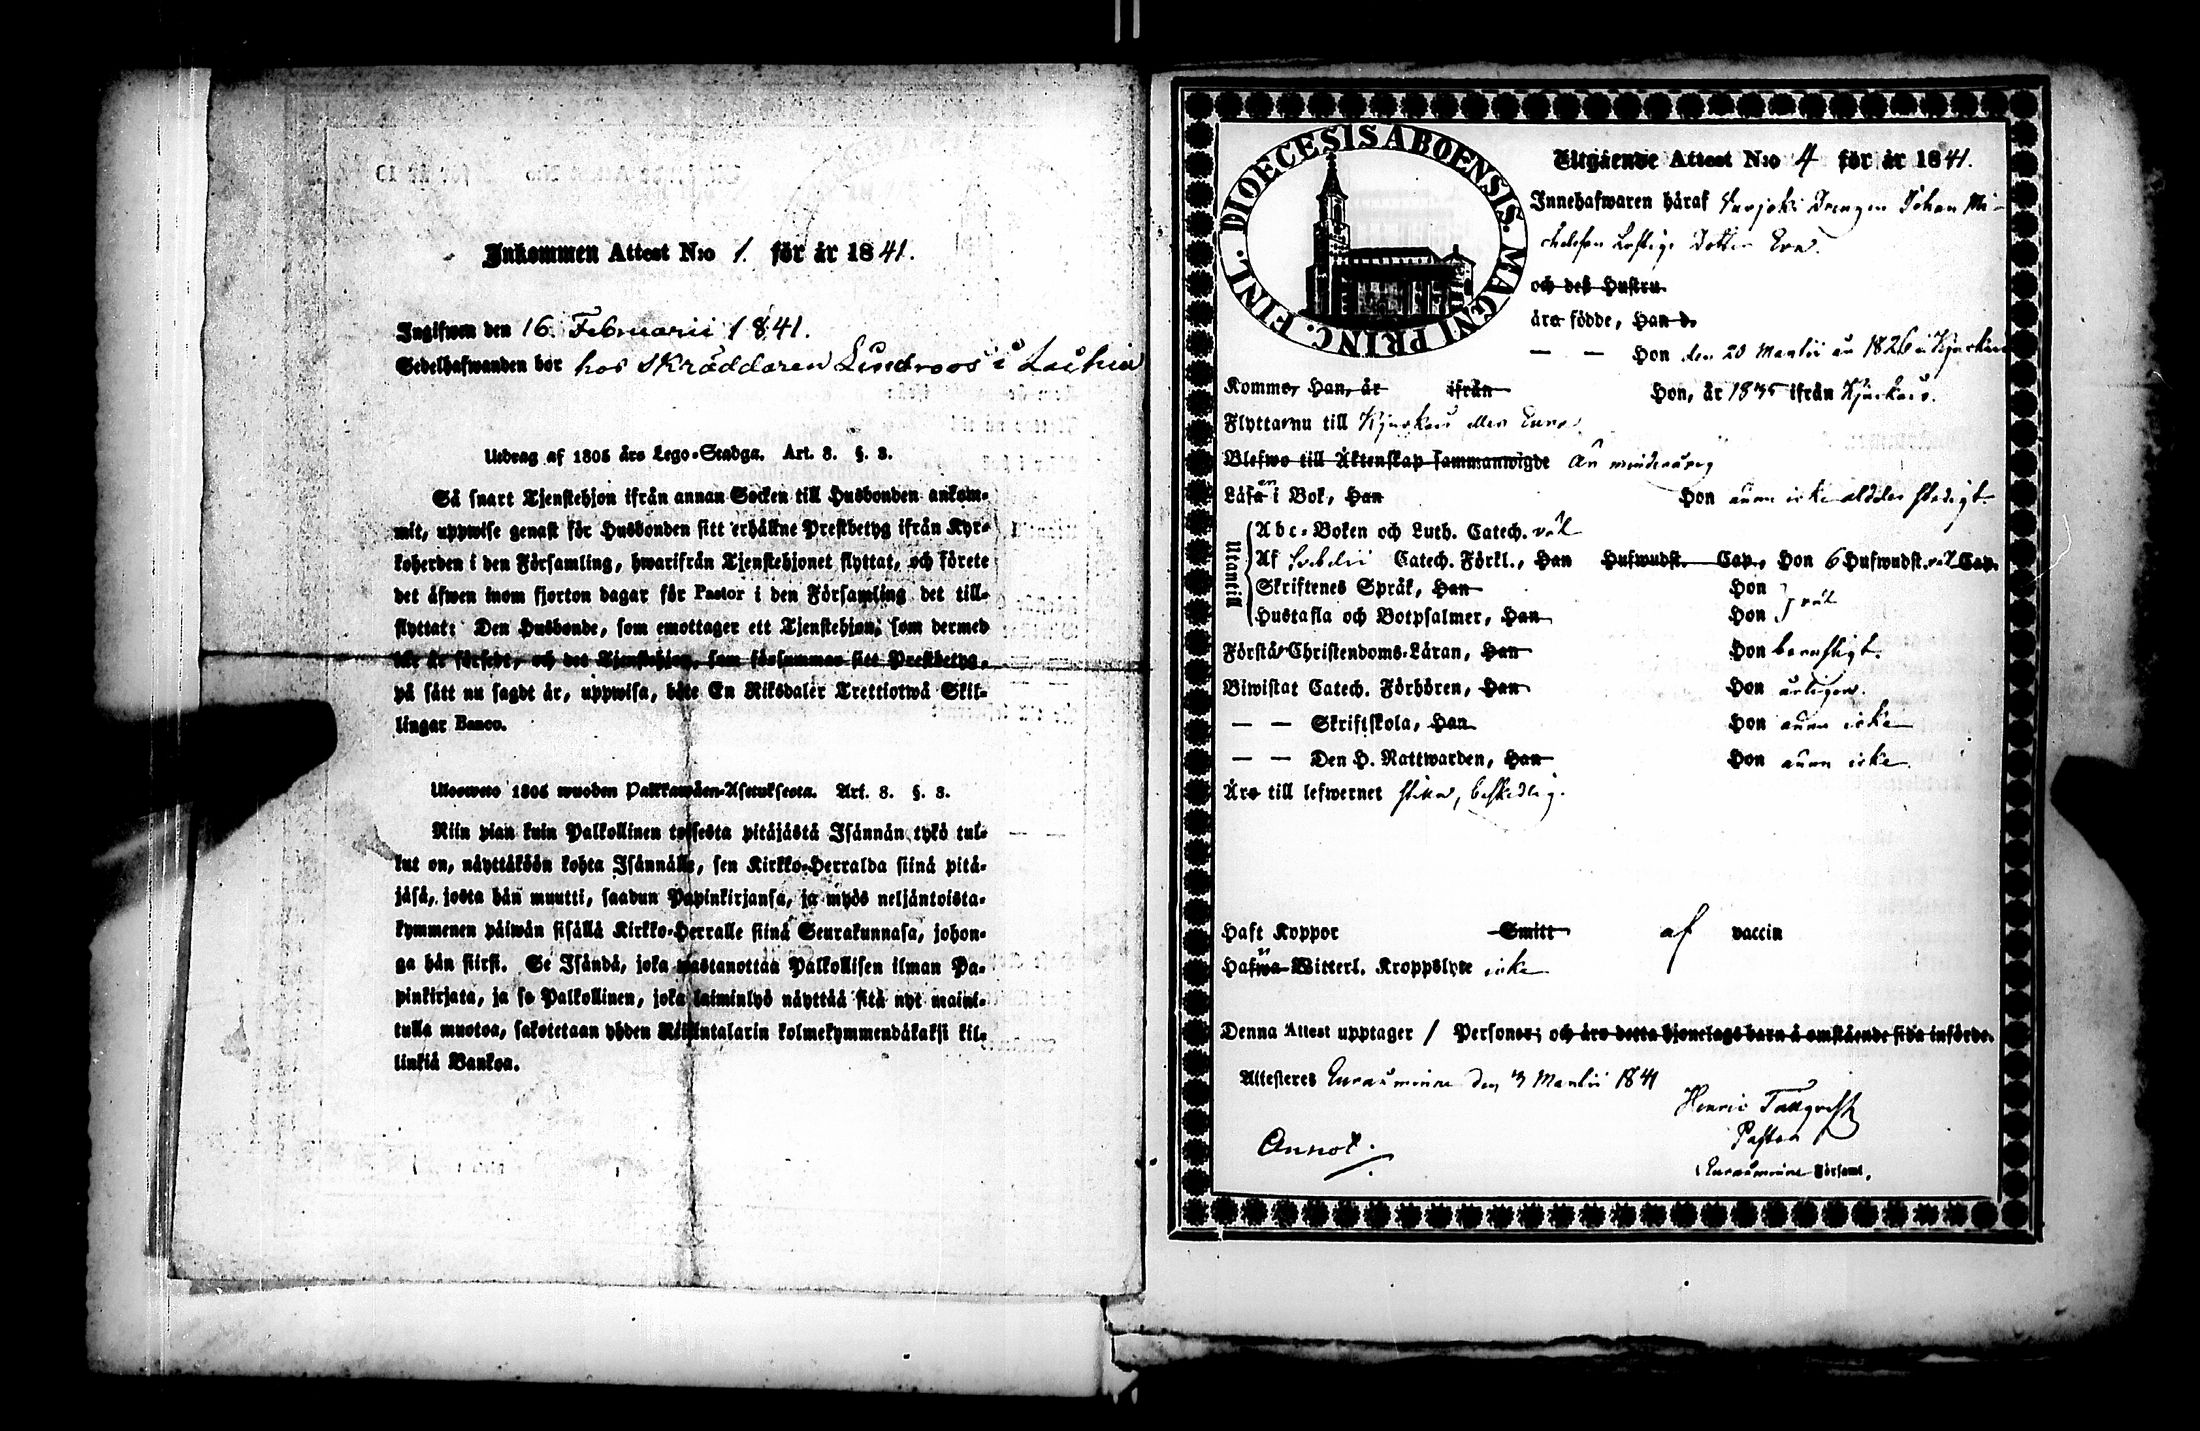 Inkommen Attest N:o 1. för år 1841.
Ingifwen den 16. Februarii 1841.
Sedelhafwanden bor hos Skräddaren Lindroos i
Utdrag af 1805 års Lego-Stadga. Art. 8. §. 3.
Så snart Tjenstehjon ifrån annan Socken till Husbonden ankom-
mit, uppwise genast för Husbonden sitt erhållne Prestbetyg ifrån Kyr-
koherden i den Församling, hwarifrån Tjenstehjonet flyttat, och förete
det äfwen inom fjorton dagar för Pastor i den Församling det till-
flyttat: Den Husbonde, som emottager ett Tjenstehjon, som dermed
icke är försedt, och det Tjenstehjon, som försummar sitt Prestbetyg,
på sätt nu sagdt är, uppwisa, böte En Riksdaler Trettiotwå Skil-
lingar Banco.
Ulosweto 1805 wuoden Palkkawäen-Asetuksesta. Art. 8. §. 3.
Niin pian kuin Palkollinen toisesta pitäjästä Isännän tykö tul-
lut on, näyttäköön kohta Isännälle, sen Kirkko-Herralda siinä pitä-
jäsä, josta hän muutti, saadun Papinkirjansa, ja myös neljäntoista-
kymmenen päiwän sisällä Kirkko-Herralle siinä Seurakunnasa, johon-
ga hän siirsi. Se Isändä, joka wastanottaa Palkollisen ilman Pa-
pinkirjata, ja se Palkollinen, joka laiminlyö näyttää sitä nyt maini-
tulla muotoa, sakotetaan yhden Riikintalarin kolmekymmendäkaksi kil-
linkiä Bankoa.
DIOECESIS ABOENSIS. MAGNI PRINC. FINL.
Utgående Attest N:o 4 för år 1841.
Innehafwaren häraf Drengen Johan Mi-
chelsson Dotter Eva.
och deß Hustru
äro födde, Han d.
— — Hon den 20 Martii år 1826 i
Kommo, Han, år ifrån Hon, år 1835 ifrån
Flyttar nu till eller Eura
Blefwo till Äktenskap sammanwigde Än minderårig
Läsa i Bok, Han Hon ännu icke alldeles stadigt
Utantill
Abc-Boken och Luth. Catech. väl
Af Catech. Förkl., Han Hufwudst. Cap., Hon 6 Hufwudst. väl Cap.
Skriftenes Språk, Han Hon
Hustafla och Botpsalmer, Han Hon väl
Förstå Christendoms-Läran, Han Hon
Biwistat Catech. Förhören, Han Hon årligen.
— — Skriftskola, Han Hon ännu icke
— — Den H. Nattwarden, Han Hon ännu icke
Äro till lefwernet stilla, beskedlig.
Haft Koppor Smitt af vaccin
Hafwa Witterl. Kroppslyte icke
Denna Attest upptager 1 Personer; och äro detta hjonelags barn å omstående sida införde.
Attesteres Euraåminne den 3 Martii 1841
Henric Tallqvist
Pastor
Annot.
i Euraåminne Församl.